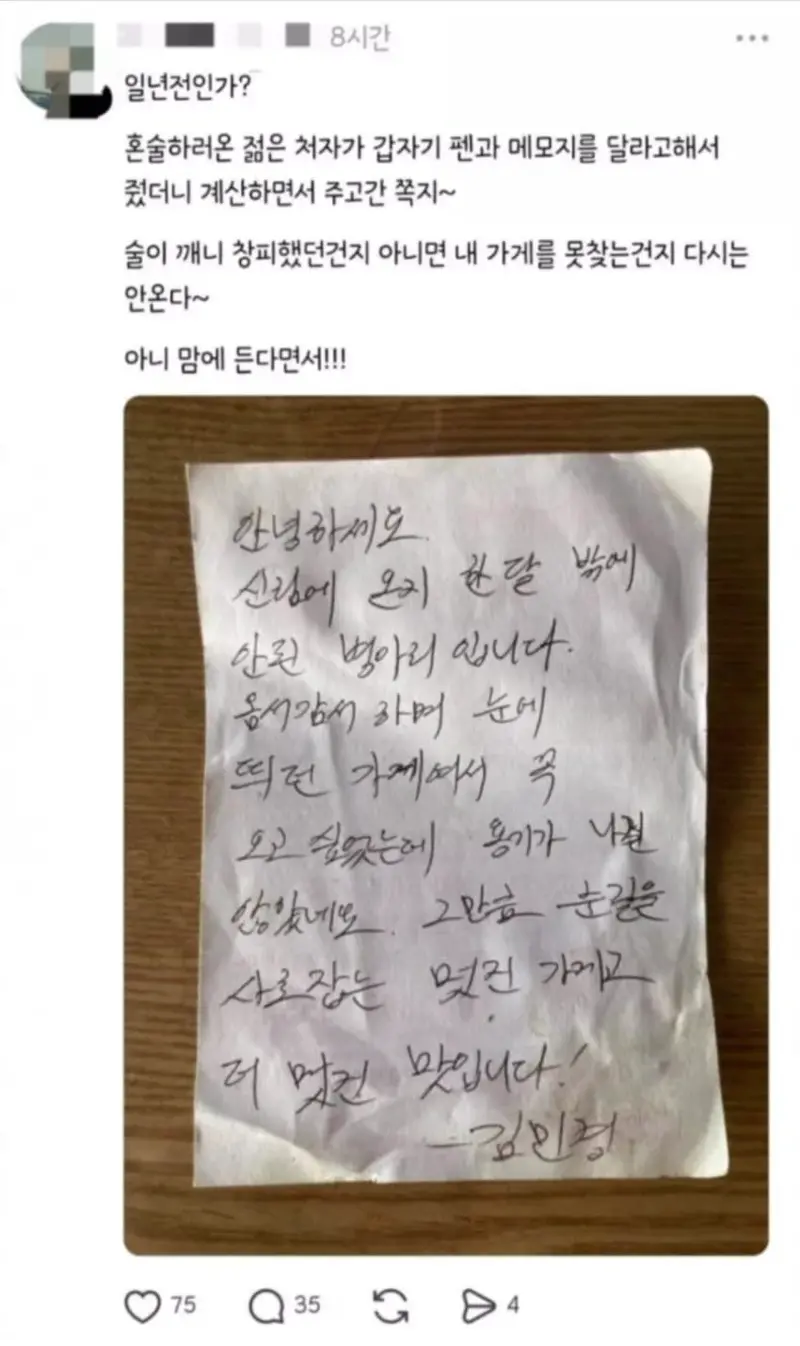 8시간
일년전인가?
혼술하러온 젊은 처자가 갑자기 펜과 메모지를 달라고해서
줬더니 계산하면서 주고간 쪽지~
술이 깨니 창피했던건지 아니면 내 가게를 못찾는건지 다시는
안온다~
아니 맘에 든다면서!!!
안녕하세요
신림에 온지 한달 밖에
안된 병아리 입니다.
옴서감서 하며 눈에
띄던 가게여서 꼭
오고 싶었는데 용기가 나질
않았네요. 그만큼 눈길을
사로잡는 멋진 가게고
더 멋진 맛입니다!
-김민정
75 35 4